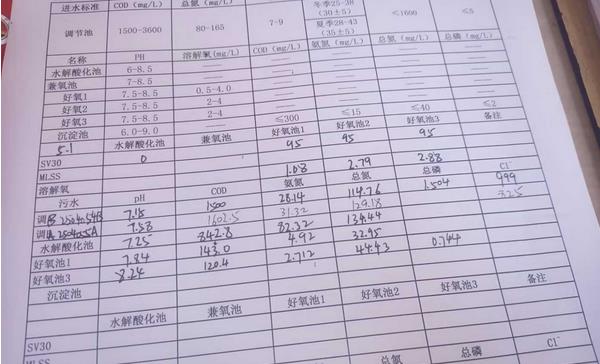 进水标准 COD (mg/L) 总氮 (mg/L) 冬季25-38 (30±5) ≤1600 ≤5
调节池 1500-3600 80-165 7-9 夏季28-43 (35±5)
名称 PH 溶解氧(mg/L) COD (mg/L) 氨氮 (mg/L) 总氮 (mg/L) 总磷 (mg/L)
水解酸化池 6-8.5 —— —— —— —— ——
兼氧池 7-8.5 —— —— —— —— ——
好氧1 7.5-8.5 0.5-4.0 —— —— —— ——
好氧2 7.5-8.5 2-4 —— —— —— ——
好氧3 7.5-8.5 2-4 —— —— —— ——
沉淀池 6.0-9.0 —— ≤300 ≤15 ≤40 ≤2
5.1 水解酸化池 兼氧池 好氧池1 好氧池2 好氧池3 备注
SV30 0 95 95 95
MLSS
溶解氧 1.08 2.79 2.88
污水 pH COD 氨氮 总氮 总磷 Cl⁻
7.15 1500 28.14 114.76 1.504 999
7.58 1602.5 31.32 129.18 325
水解酸化池 7.25 842.8 82.32 134.44
好氧池1 7.84 143.0 4.92 32.95
好氧池3 8.24 120.4 2.712 44.43 0.744
沉淀池
水解酸化池 兼氧池 好氧池1 好氧池2 好氧池3 备注
SV30
MLSS
总氮 总磷 Cl⁻